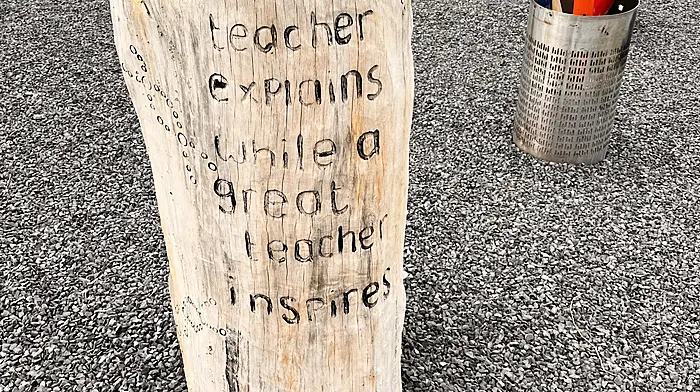 teacher
explains
while a
great
teacher
inspires